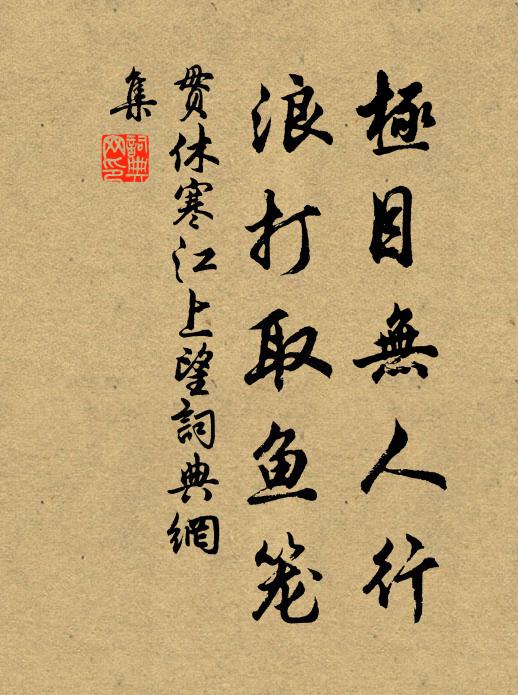 極目無人行
浪打取鱼笼
貫休寒江上望詞典網
集
詞典
网印